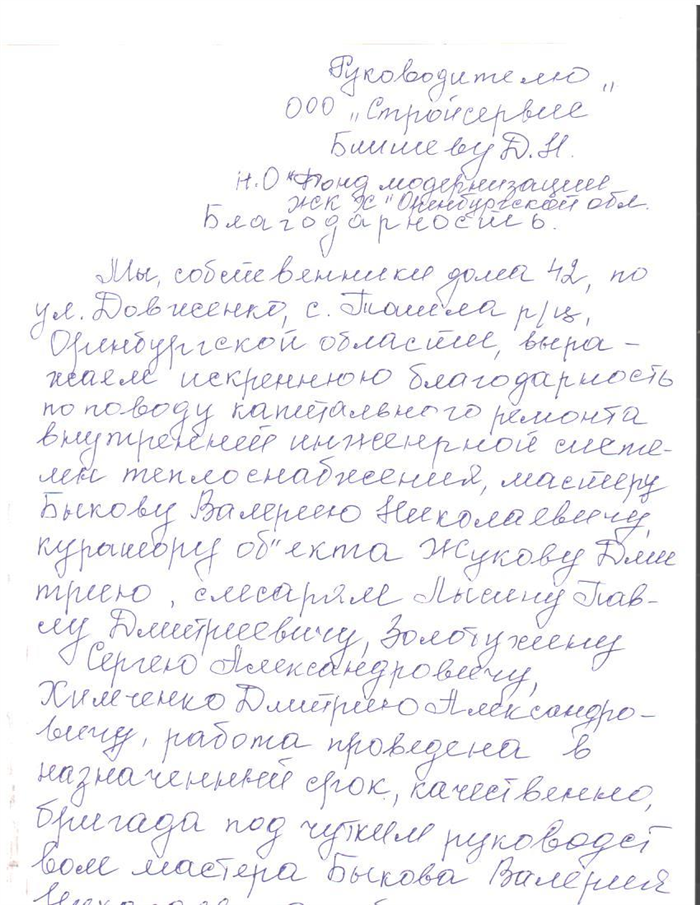 Руководителю
ООО „Стройсервис"
Блишеву Д.Н.
Н.О "Фонд модернизации
ЖКХ" Оренбургской обл.
Благодарность.
Мы, собственники дома 42, по
ул. Довженко, с. Ташла р/ц,
Оренбургской области, выра-
жаем искреннюю благодарность
по поводу капитального ремонта
внутренней инженерной систе-
мы теплоснабжения, мастеру
Быкову Валерию Николаевичу,
куратору об"екта Жукову Дми
трию, слесарям Лысину Пав-
лу Дмитриевичу, Золотухину
Сергею Александровичу,
Химченко Дмитрию Александро-
вичу, работа проведена в
назначенный срок, качественно,
бригада под чутким руководст
вом мастера Быкова Валерия